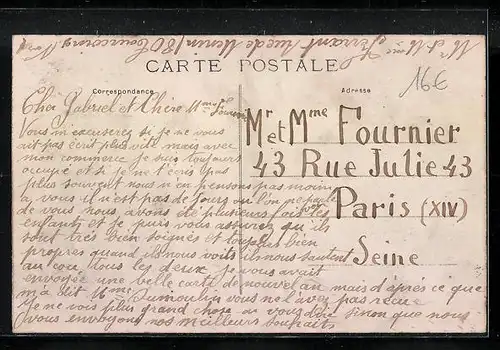 Mr et Mme Ferrant rue de Menin 180 Tourcoing Nord
CARTE POSTALE
Correspondance
Adresse
16 €
Cher Gabriel et Chère Mme
Vous m'excuserez si je ne vous
ait pas écrit plus vite mais avec
mon commerce je suis toujours
occupé et si je ne t'écris pas
plus souvent nous n'en pensons pas moin
a vous il n'est pas de jours ou l'on ne parle
de vous nous avons été plusieurs fois
enfants et je puis vous assurez qu'ils
sont très bien soignés et toujours bien
propres quand ils nous voits ils nous sautent
au cou tous les deux Je vous avait
envoyée une belle carte de nouvel an mais d'après ce que
m'a dit Mme Dumoulin vous ne l'avez pas reçue
Je ne vois plus grand chose a vous dire sinon que nous
vous envoyons nos meilleurs souhaits
Mr et Mme Fournier
43 Rue Julie 43
Paris (XIV)
Seine